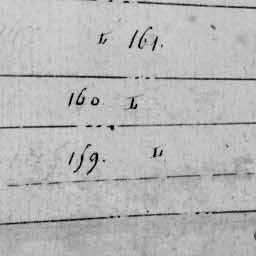 L 161.
160 L
159. L